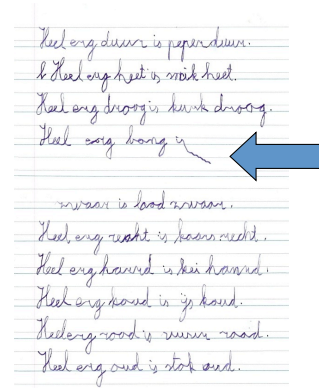 Heel erg duur is peperduur.
Heel erg heet is snikheet.
Heel erg droog is kurk droog.
Heel erg bang is
zwaar is lood zwaar.
Heel erg recht is kaars recht.
Heel erg hard is kei hard.
Heel erg koud is ijs koud.
Heel erg rood is vuur rood.
Heel erg oud is stok oud.